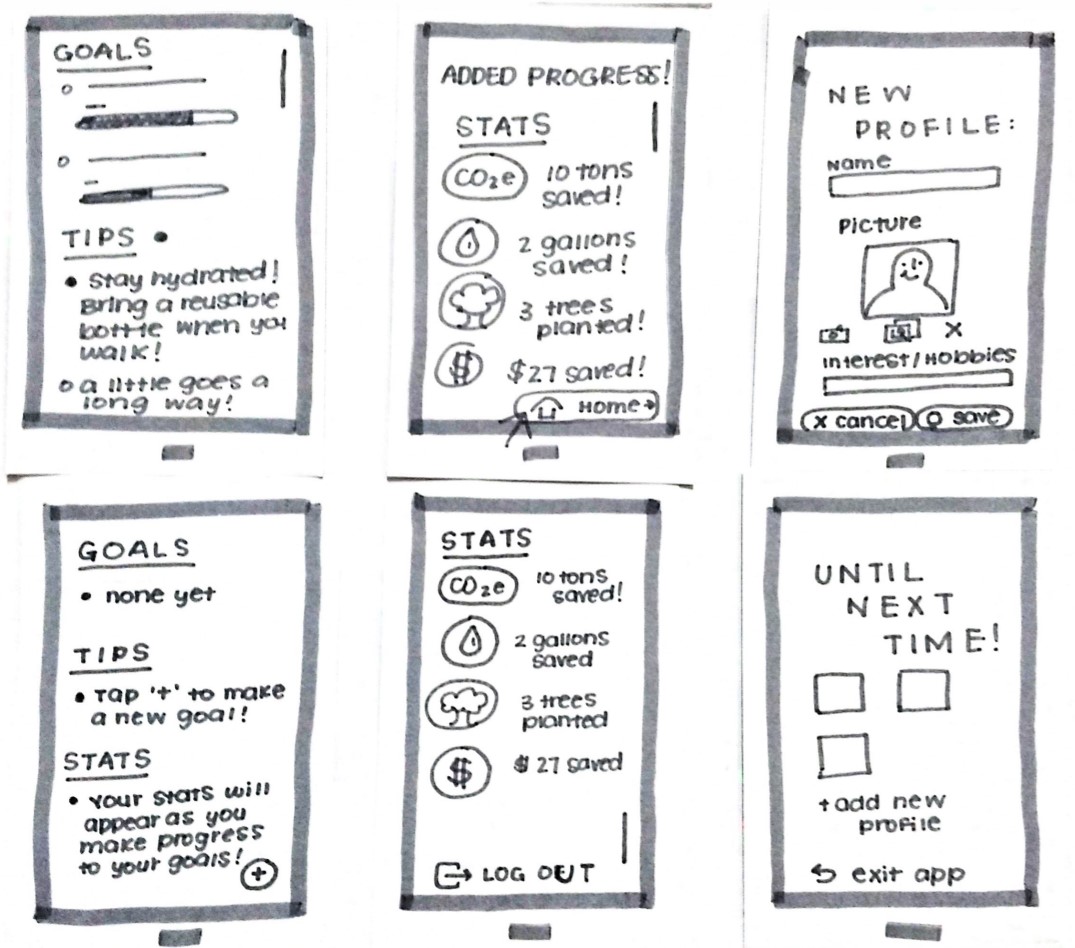 GOALS
TIPS
Stay hydrated!
Bring a reusable
bottle when you
walk!
a little goes a
long way!
ADDED PROGRESS!
STATS
CO₂e
10 tons
saved!
2 gallons
saved!
3 trees
planted!
$
$27 saved!
Home
NEW
PROFILE:
Name
Picture
X
Interest/Hobbies
X cancel
O save
GOALS
• none yet
TIPS
• Tap '+' to make
a new goal!
STATS
• Your stats will
appear as you
make progress
to your goals!
+
STATS
CO₂e
10 tons
saved!
2 gallons
saved
3 trees
planted
$
$27 saved
LOG OUT
UNTIL
NEXT
TIME!
+ add new
profile
exit app